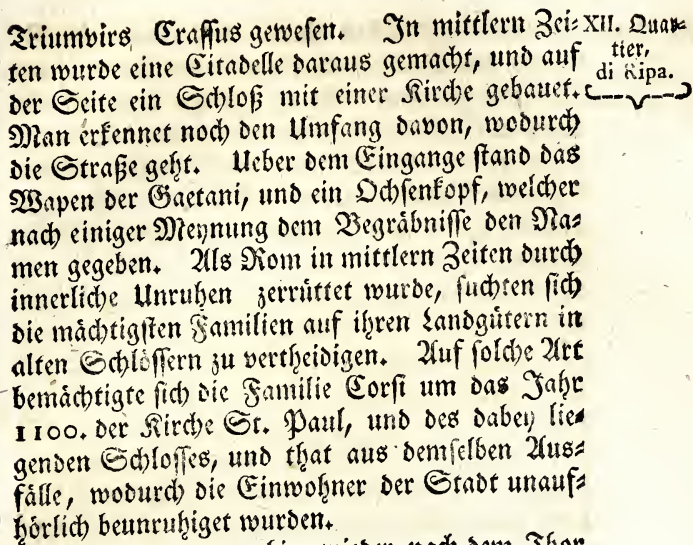 Triumvirs Crassus gewesen. In mittlern Zei-
ten wurde eine Citadelle daraus gemacht, und auf
der Seite ein Schloß mit einer Kirche gebauet.
Man erkennet noch den Umfang davon, wodurch
die Straße geht. Ueber dem Eingange stand das
Wapen der Gaetani, und ein Ochsenkopf, welcher
nach einiger Meynung dem Begräbnisse den Na-
men gegeben. Als Rom in mittlern Zeiten durch
innerliche Unruhen zerrüttet wurde, suchten sich
die mächtigsten Familien auf ihren Landgütern in
alten Schlössern zu vertheidigen. Auf solche Art
bemächtigte sich die Familie Corsi um das Jahr
1100. der Kirche St. Paul, und des dabey lie-
genden Schlosses, und that aus demselben Aus-
fälle, wodurch die Einwohner der Stadt unauf-
hörlich beunruhiget wurden.
XII. Quar-
tier,
di Ripa.